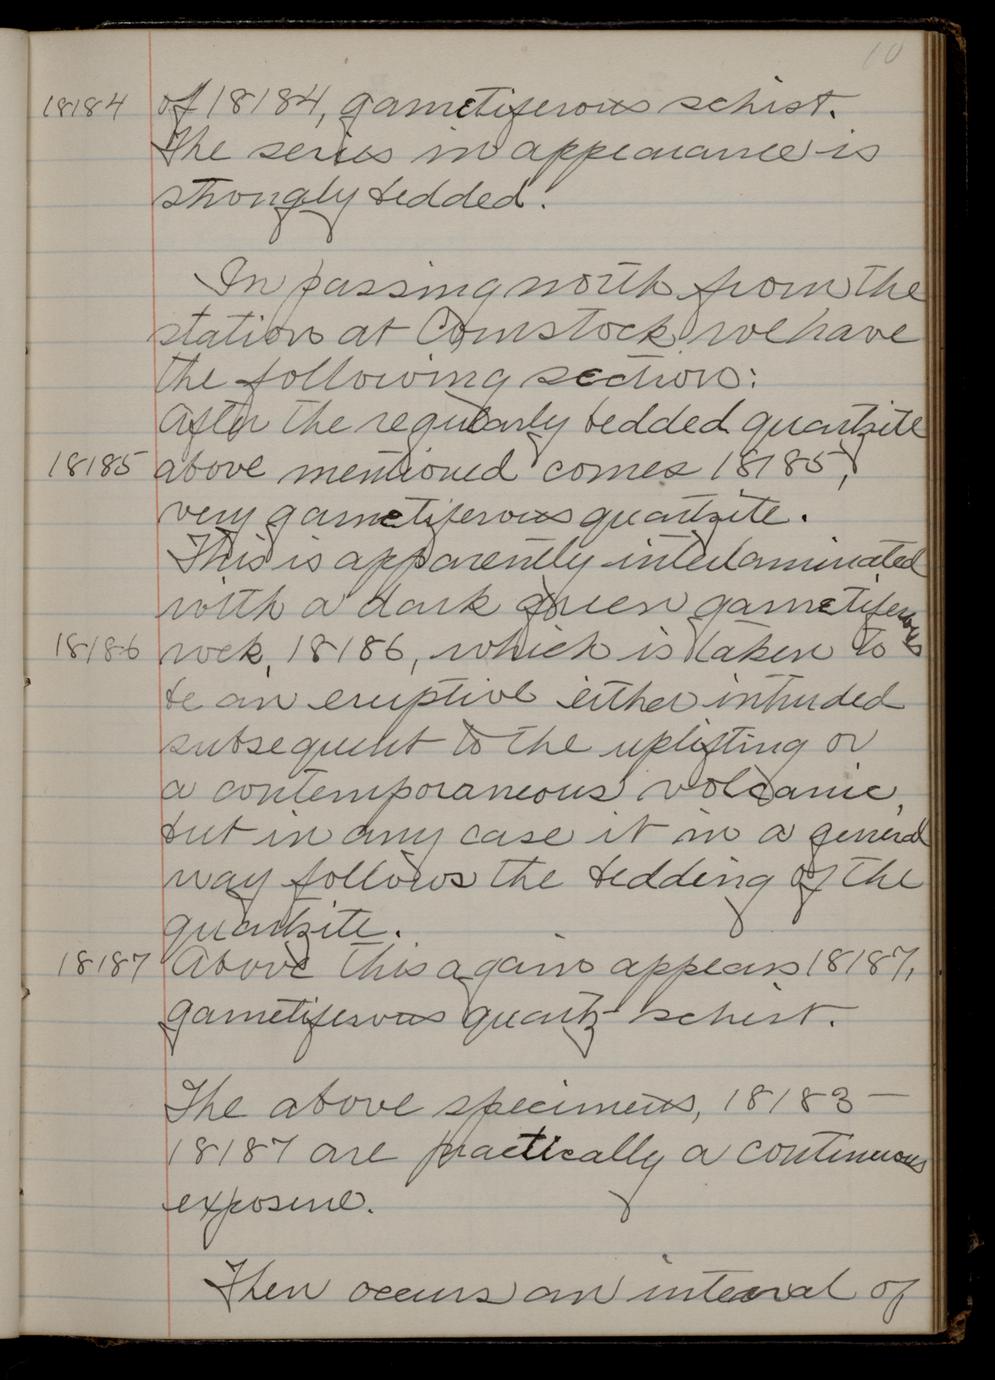 10
18184 of 18184, garnetiferous schist.
The series in appearance is
strongly bedded.
In passing north from the
station at Comstock we have
the following section:
After the regularly bedded quartzite
18185 above mentioned comes 18185,
very garnetiferous quartzite.
This is apparently interlaminated
with a dark green garnetiferous
18186 rock, 18186, which is taken to
be an eruptive either intruded
subsequent to the uplifting or
a contemporaneous volcanic,
but in any case it in a general
way follows the bedding of the
quartzite.
18187 Above this again appears 18187,
garnetiferous quartz-schist.
The above specimens, 18183—
18187 are practically a continuous
exposure.
Then occurs an interval of